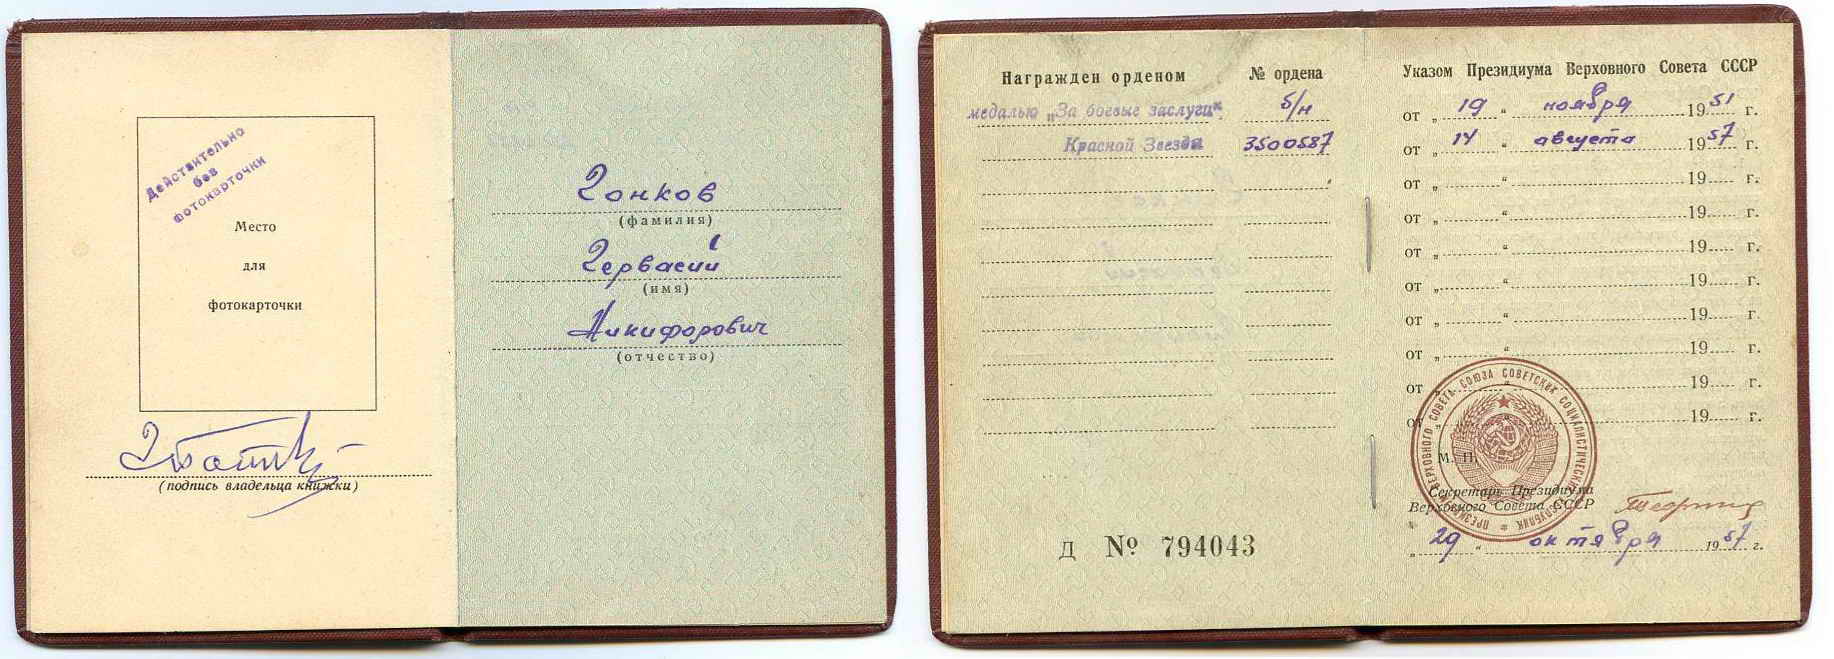 Действительно
без
фотокарточки
Место
для
фотокарточки
(подпись владельца книжки)
Гонков
(фамилия)
Гервасий
(имя)
Никифорович
(отчество)
Награжден орденом № ордена
медалью „За боевые заслуги“ б/н
Красной Звезды 3500587
Д № 794043
Указом Президиума Верховного Совета СССР
от „ 19 “ ноября 1951 г.
от „ 14 “ августа 1957 г.
от „ “ 19 г.
от „ “ 19 г.
от „ “ 19 г.
от „ “ 19 г.
от „ “ 19 г.
от „ “ 19 г.
от „ “ 19 г.
от „ “ 19 г.
М. П.
Секретарь Президиума
Верховного Совета СССР
„ 29 “ октября 1957 г.
ПРЕЗИДИУМ ВЕРХОВНОГО СОВЕТА СОЮЗА СОВЕТСКИХ СОЦИАЛИСТИЧЕСКИХ РЕСПУБЛИК